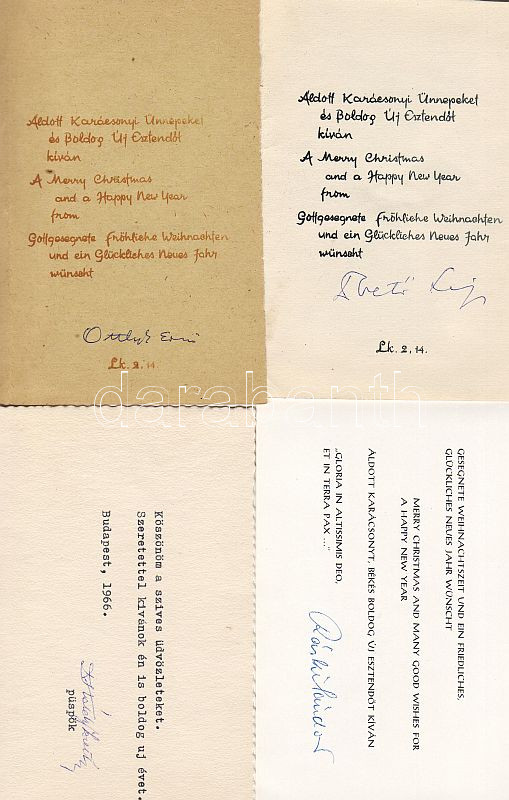 Áldott Karácsonyi Ünnepeket
és Boldog Új Esztendőt
kíván
A Merry Christmas
and a Happy New Year
from
Gottgesegnete Fröhliche Weihnachten
und ein Glückliches Neues Jahr
wünscht
Ottlyk Ernő
Lk. 2, 14.
Áldott Karácsonyi Ünnepeket
és Boldog Új Esztendőt
kíván
A Merry Christmas
and a Happy New Year
from
Gottgesegnete Fröhliche Weihnachten
und ein Glückliches Neues Jahr
wünscht
Lk. 2, 14.
darabanth
Köszönöm a szives üdvözleteket.
Szeretettel kivánok én is boldog uj évet.
Budapest, 1966.
püspök
GESEGNETE WEIHNACHTSZEIT UND EIN FRIEDLICHES,
GLÜCKLICHES NEUES JAHR WÜNSCHT
MERRY CHRISTMAS AND MANY GOOD WISHES FOR
A HAPPY NEW YEAR
ÁLDOTT KARÁCSONYT, BÉKÉS BOLDOG ÚJ ESZTENDŐT KÍVÁN
„GLORIA IN ALTISSIMIS DEO,
ET IN TERRA PAX ..."
Ráski Sándor